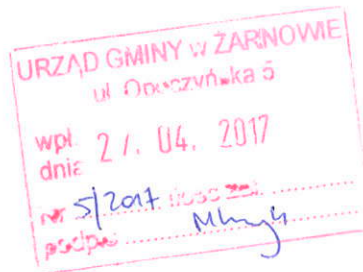 URZĄD GMINY w ŻARNOWIE
ul. Opoczyńska 5
wpł.
dnia 27. 04. 2017
nr 5/2017 ilość zał. ..............
podpis ..............